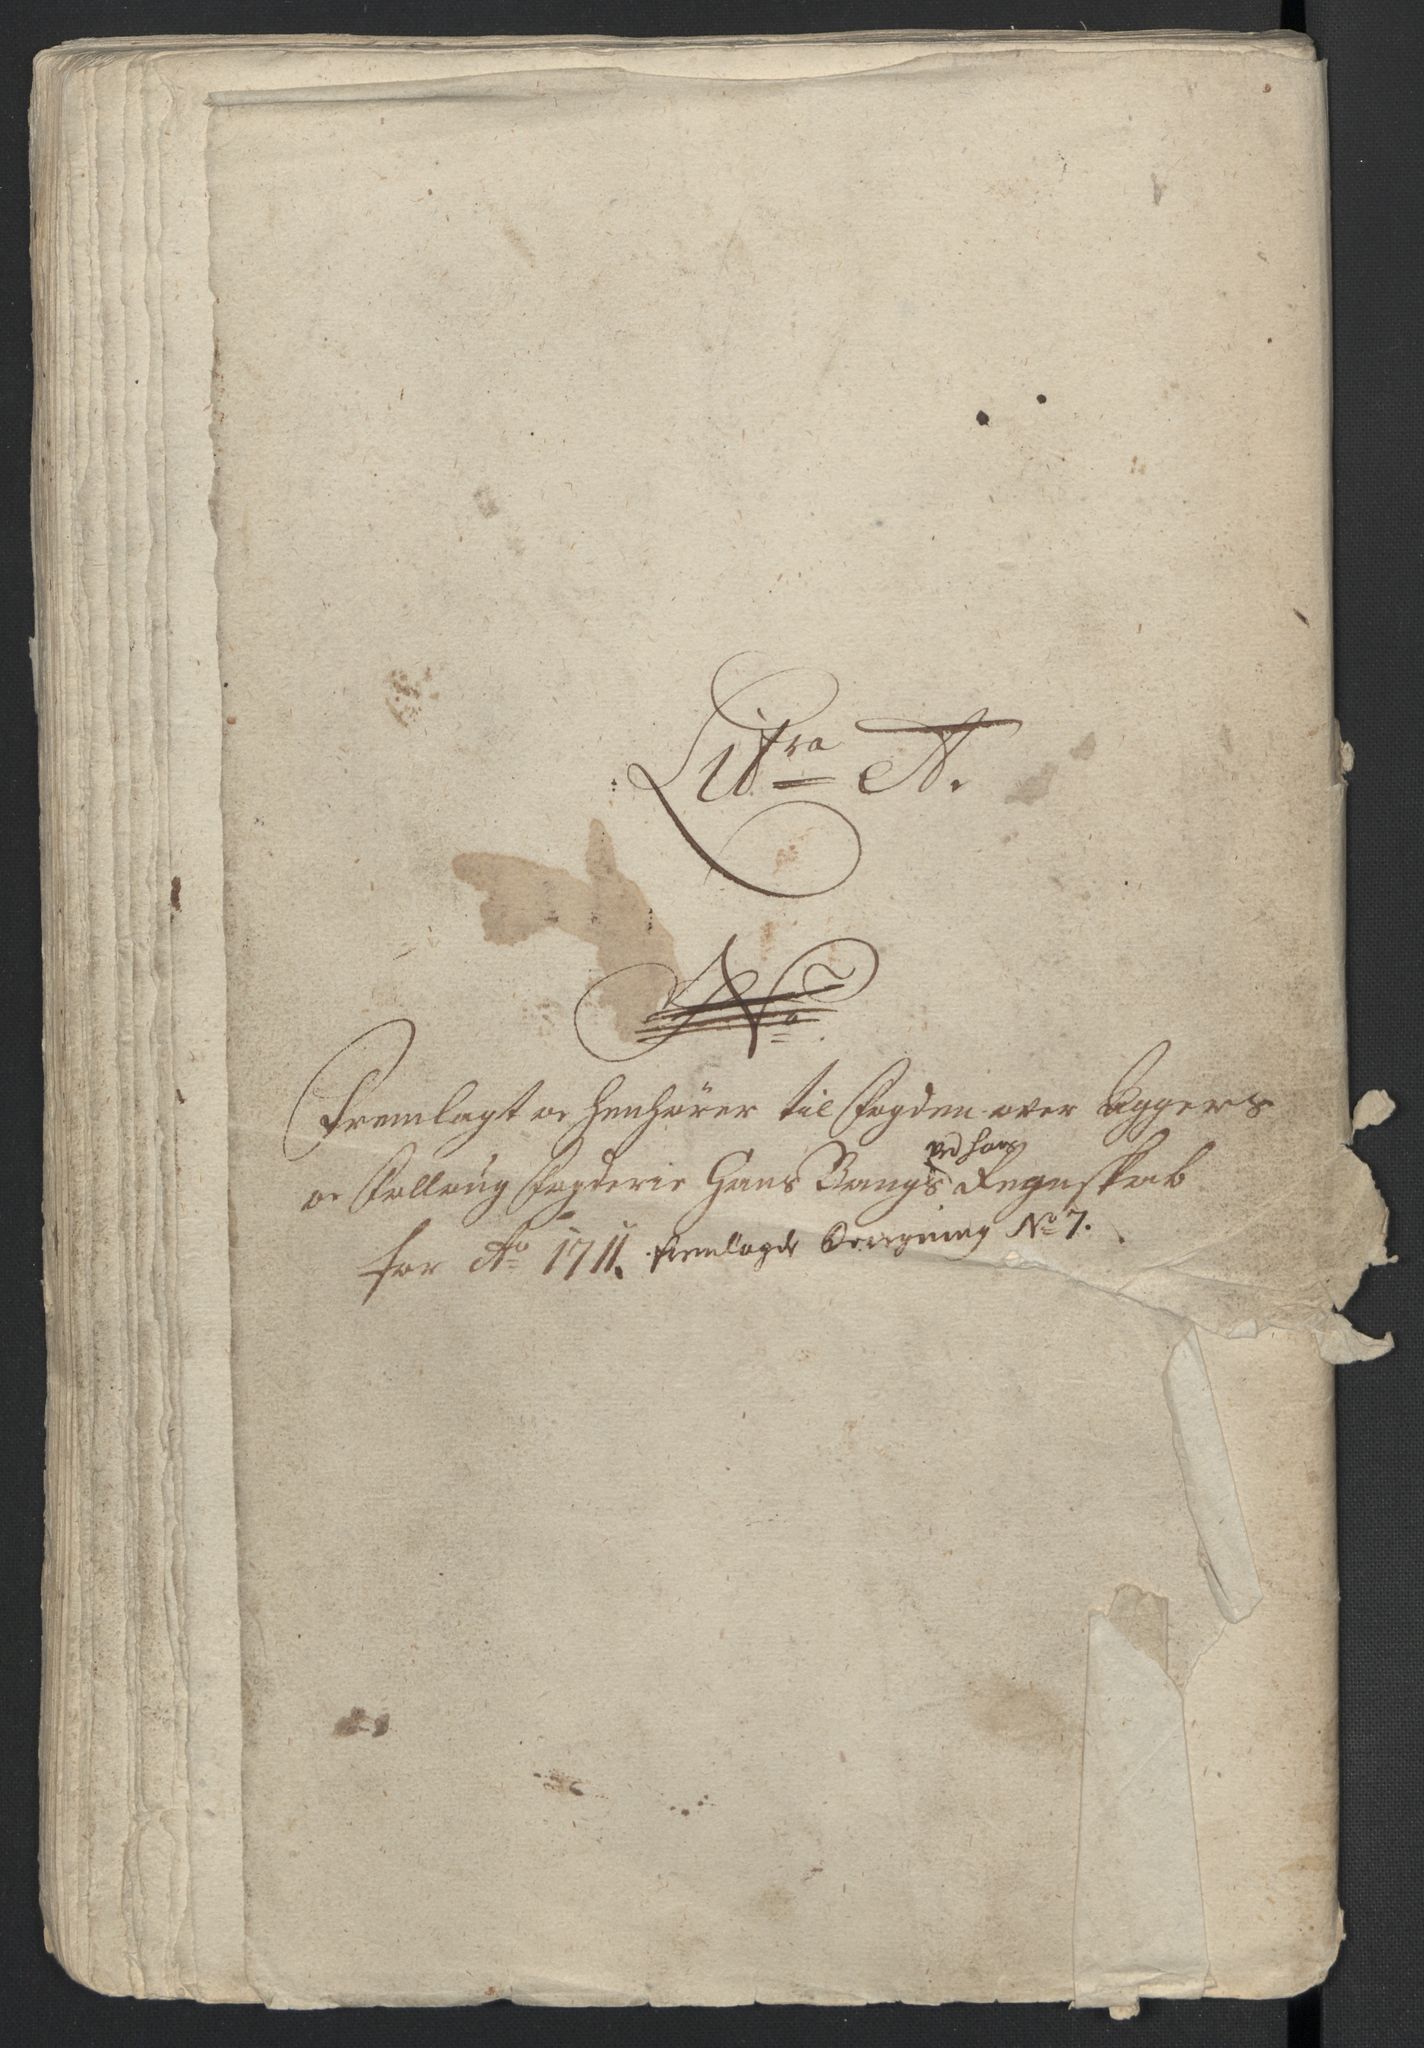 Litra A.
No
Fremlagt oc henhører til Fogden over Aggers
oc Folloug Fogderie Hans Bangs ved hans Regnskab
for Ao 1711. fremlagde Beregning No 7.